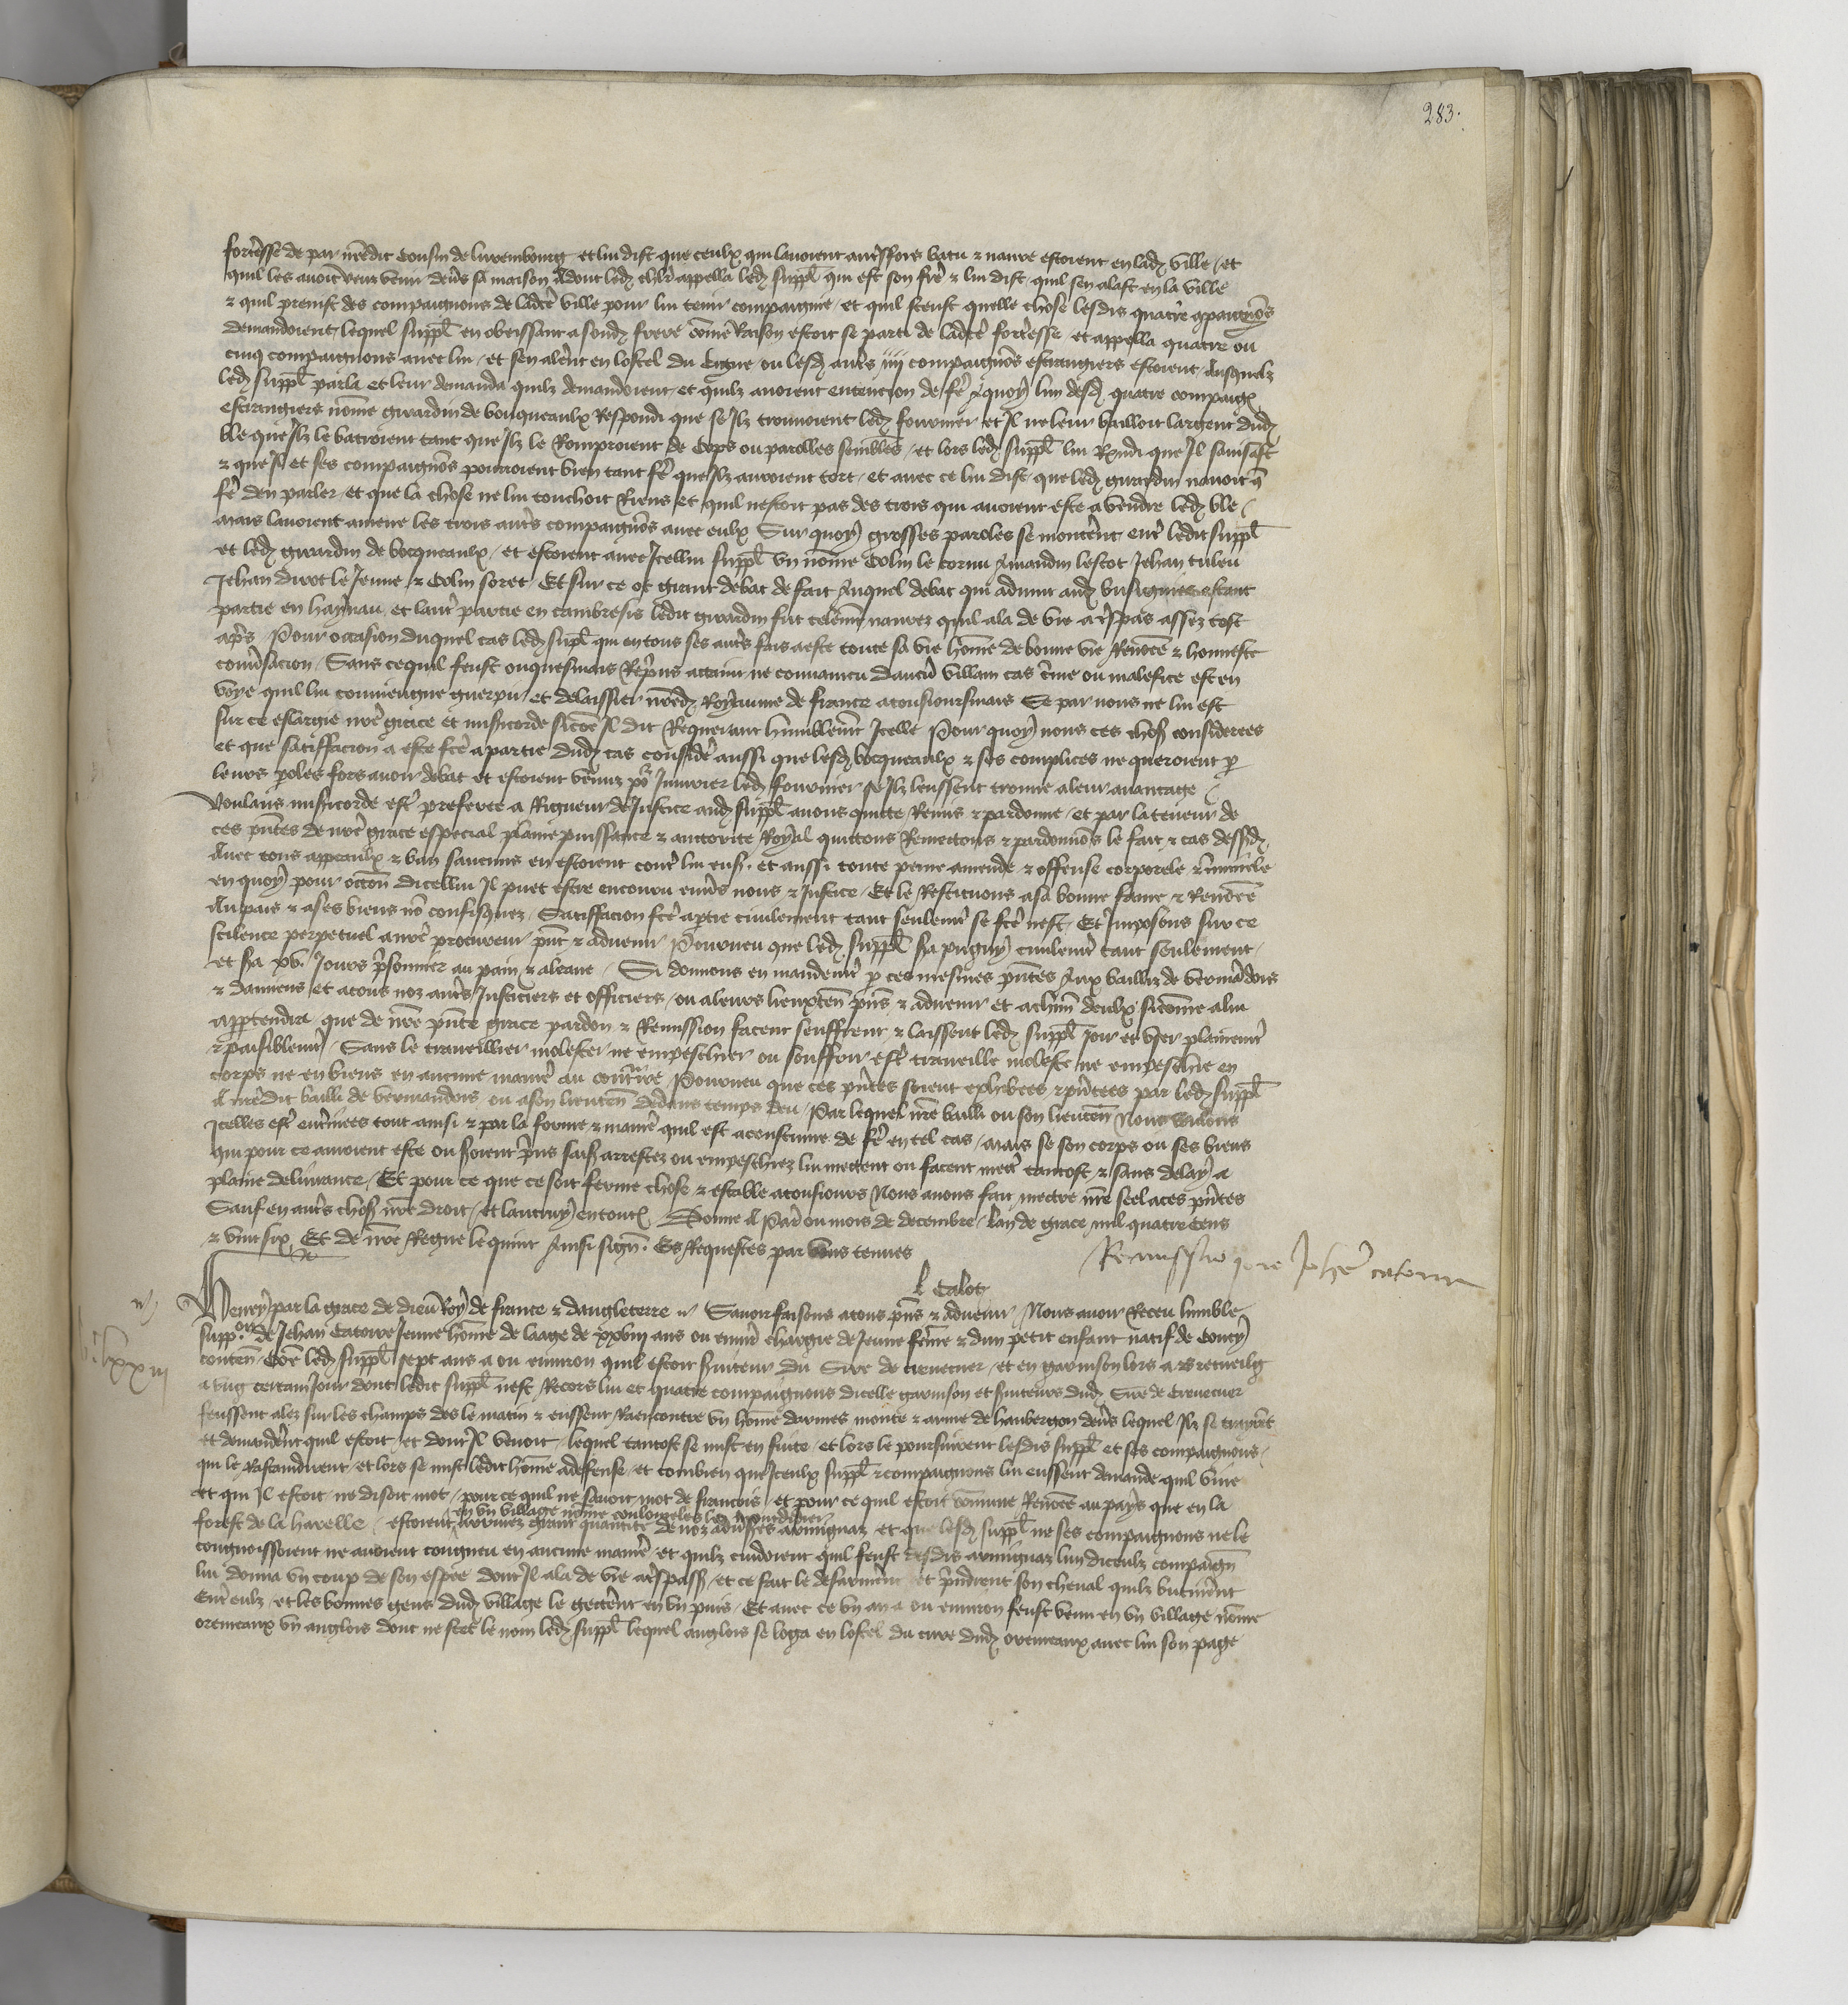 283.
forteresse de par nredit cousin de luxembourg et lui dist que ceulx qui lavoient autreffois batu & navre estoient en lad ville / et
quil les avoit veuz venir devers sa maison Adont led chlr appella led suppl qui est son frere & lui dist quil sen alast en la ville
& quil prensist des compaignons de ladite ville pour lui tenir compaignie / et quil sceust quelle chose lesdis quatre compaignons
demandoient lequel suppl en obeissant a sond frere comme Raison estoit se parti de ladite forteresse et appella quatre ou
cinq compaignons avec lui / et sen alerent en lostel du Cigne ou lesd autres iiii compaignons estrangiers estoient / Ausquelz
led suppl parla et leur demanda quilz demandoient et quilz avoient entencion de fere A quoy lun desd quatre compaig
estrangiers nomme girardin de bouqueaulx Respondi que se Ilz trouvoient led fournier et Il ne leur bailloit largent dud
ble que Ilz le batroient tant que Ilz le Romproient de cops ou parolles semblables / et lors led suppl lui Rendi que Il
& que Il et ses compaignons pourroient bien tant fere que Ilz auroient tort / et avec ce lui dist que led girardin navoit q
fere den parler / et que la chose ne lui touchoit Riens et quil nestoit pas des trois qui avoient este a vendre led ble /
mais lavoient amene les trois autres compaignons avec eulx Sur quoy grosses paroles se monterent entre ledit suppl
et led girardin de bocqueaulx / et estoient avec Icellui suppl un nomme Colin le cornu Amandin lescot Jehan tuleu
Jehan divot le Jeune & Colin soret / Et sur ce ot grant debat de fait Auquel debat qui advint aud busignies estant
partie en haynau et lautre partie en cambresis ledit girardin fut telement navrez quil ala de vie a trespas assez tost
apres Pour occasion duquel cas led suppl qui en tous ses autres fais a este toute sa vie homme de bonne vie Renommee & honneste
conversacion / Sans ce quil feust onquesmais Repris attaint ne convaincu daucun villain cas crime ou malefice est en
voye quil lui conviengne guerpir et delaissier nred Royaume de france a tousioursmais Se par nous ne lui est
sur ce eslargie nre grace et misericorde sicome Il dit Requerant humblement Icelle Pour quoy nous ces choses considerees
et que satisfacion a este fcte a partie dud cas considere aussi que lesd bocqueaulx & ses complices ne queroient p
leurs poles fors avoir debat et estoient venuz pour Iniurier led fournier se Ilz leussent trouve a leur avantage /
Voulans misericorde estre preferee a Rigueur de Justice aud suppl avons quitte Remis & pardonne / et par la teneur de
ces pntes de nre grace especial plaine puissance & auctorite Royal quittons Remettons & pardonnons le fait & cas dessusd
Avec tous appeaulx & ban saucuns en estoient contre lui ensi et aussi toute peine amende & offense corporele & criminele
en quoy pour occon dicellui Il puet estre encouru envers nous & Justice / Et le Restituons a sa bonne fame & Renomee
Au pais & a ses biens non confisquez / Satisfacion fcte a partie civilement tant seulement se fcte nest / Et Imposons sur ce
scilence perpetuel a nre procureur pnt & advenir Pourveu que led suppl sera pugny civilement tant seulement /
et sera xv Jours prisonnier au pain & a leaue / Si donnons en mandement p ces mesmes pntes Aux bailliz de vermandois
& damiens et a tous noz autres Justiciers et officiers / ou a leurs lieuxten pns & advenir et a chun deulx sicomme a lui
appartendra que de nre pnte grace pardon & Remission facent seuffrent & laissent led suppl Joir et user plainement
& paisiblement / Sans le traveillier molester ne empeschier ou souffrir estre traveille moleste ne empeschie en
corps ne en biens en aucune maniere au contraire Pourveu que ces pntes soient exhibees & pntees par led suppl
A nredit bailli de vermandois ou a son lieuten dedens temps deu / Par lequel nre bailli ou son lieuten Nous voulons
Icelles estre enterinees tout ainsi & par la forme & maniere quil est acoustume de fere en tel cas / mais se son corps ou ses biens
qui pour ce avroient este ou soient prins saisis arrestez ou empeschiez lui mettent ou facent mettre tantost & sans delay a
plaine delivrance / Et pour ce que ce soit ferme chose & estable a tousiours Nous avons fait mectre nre seel a ces pntes
Sauf en autres choses nre droit / et lautruy en toutes Donne A Paris ou mois de decembre / Lan de grace mil quatre cens
& vint six Et de nre Regne le quint Ainsi signe Es Requestes par vous tenues
J Calot
Remissio pro Johe catoure
Henry par la grace de dieu Roy de france & dangleterre Savoir faisons a tous pns & advenir Nous avoir Receu lumble
suppon de Jehan Catoure Jeune homme de laage de xxviii ans ou environ chargie de Jeune femme & dun petit enfant natif de Coucy
conten Come led suppl sept ans a ou environ quil estoit serviteur du Sire de crevecuer / et en garnison lors a bretueilg
a ung certain Jour dont ledit suppl nest Recors lui et quatre compaignons dicelle garnison et serviteurs dud Sire de Crevecuer
feussent alez sur les champs des le matin & eussent Raencontre un homme darmes monte & arme de haubergon devers lequel Ilz se trayrent
et demanderent quil estoit / et dont Il venoit / lequel tantost se mist en fuite / et lors le poursuirent lesdis suppl et ses compaignons /
qui le Rataindirent / et lors se mist ledit homme a deffense / et combien que Iceulx suppl & compaignons lui eussent demande
et qui Il estoit / ne disoit mot / pour ce quil ne savoit mot de francois / et pour ce quil estoit commune Renomee au pays que en la
en un village nomme coulomeles les mondidier
forest de la harelle / estoient arrivez grant quantite de noz adversaires arminaz et que lesd suppl ne ses compaignons ne le
congnoissoient ne avoient congneu en aucune maniere / et quilz cuidoient quil feust desdis arminaz lun diceulx compaign
lui donna un coup de son espee dont Il ala de vie a trespass / et ce fait le desarmerent et prindrent son cheval quilz butinerent
Entre eulx / et les bonnes gens dud village le getterent en un puis / Et avec ce un an a ou environ feust venu en un village nomme
oremeaux un anglois dont ne scet le nom led suppl lequel anglois se loga en lostel du cure dud oremeaux avec lui son page